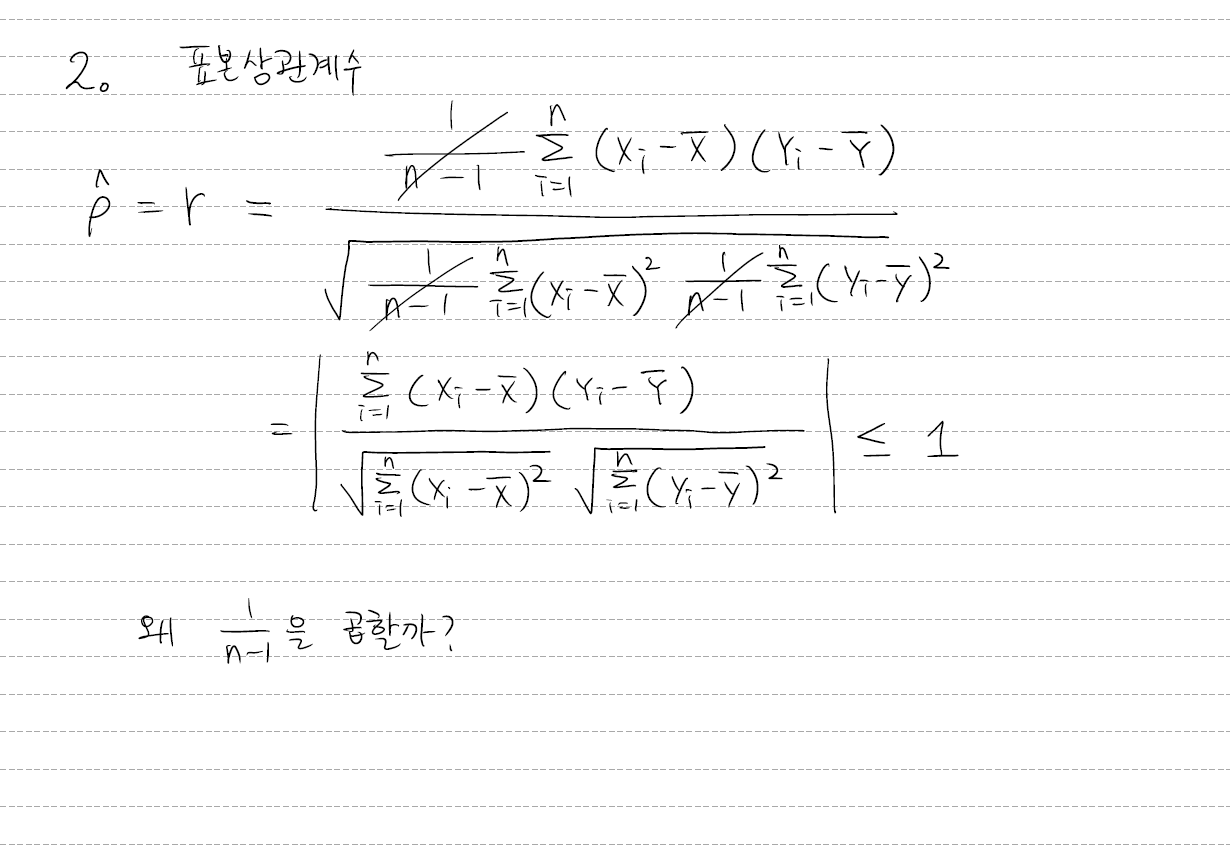 2. 표본상관계수
ρ̂ = r = \frac{\frac{1}{n-1} \sum_{i=1}^{n} (X_i - \overline{X})(Y_i - \overline{Y})}{\sqrt{\frac{1}{n-1} \sum_{i=1}^{n} (X_i - \overline{X})^2 \frac{1}{n-1} \sum_{i=1}^{n} (Y_i - \overline{Y})^2}}
= \left| \frac{\sum_{i=1}^{n} (X_i - \overline{X})(Y_i - \overline{Y})}{\sqrt{\sum_{i=1}^{n} (X_i - \overline{X})^2} \sqrt{\sum_{i=1}^{n} (Y_i - \overline{Y})^2}} \right| ≤ 1
왜 \frac{1}{n-1}을 곱할까?